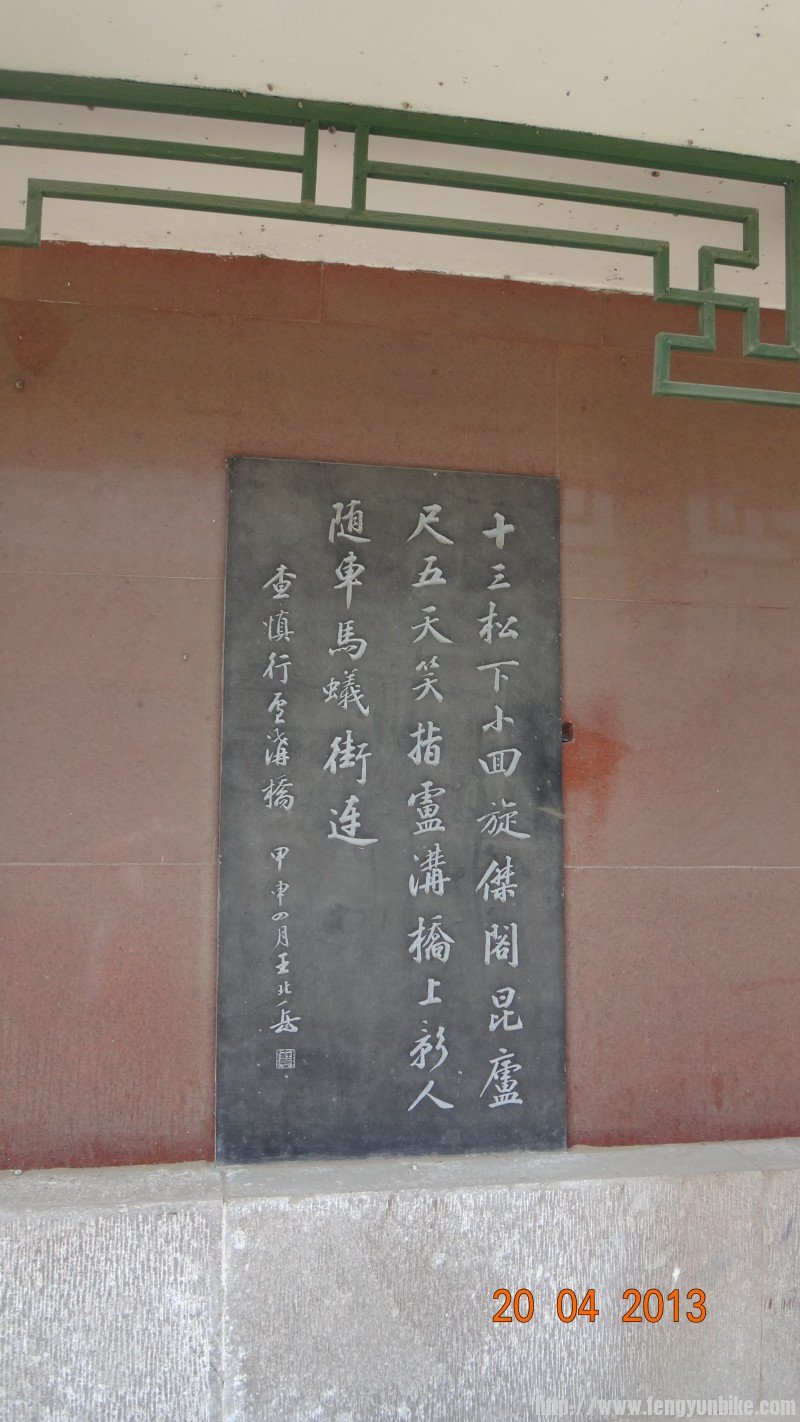 十三松下小回旋傑閣昆廬
尺五天笑指盧溝橋上影人
随車馬蟻街連
查慎行盧溝橋 甲申四月王北岳
20 04 2013
http://www.fengyunbike.com